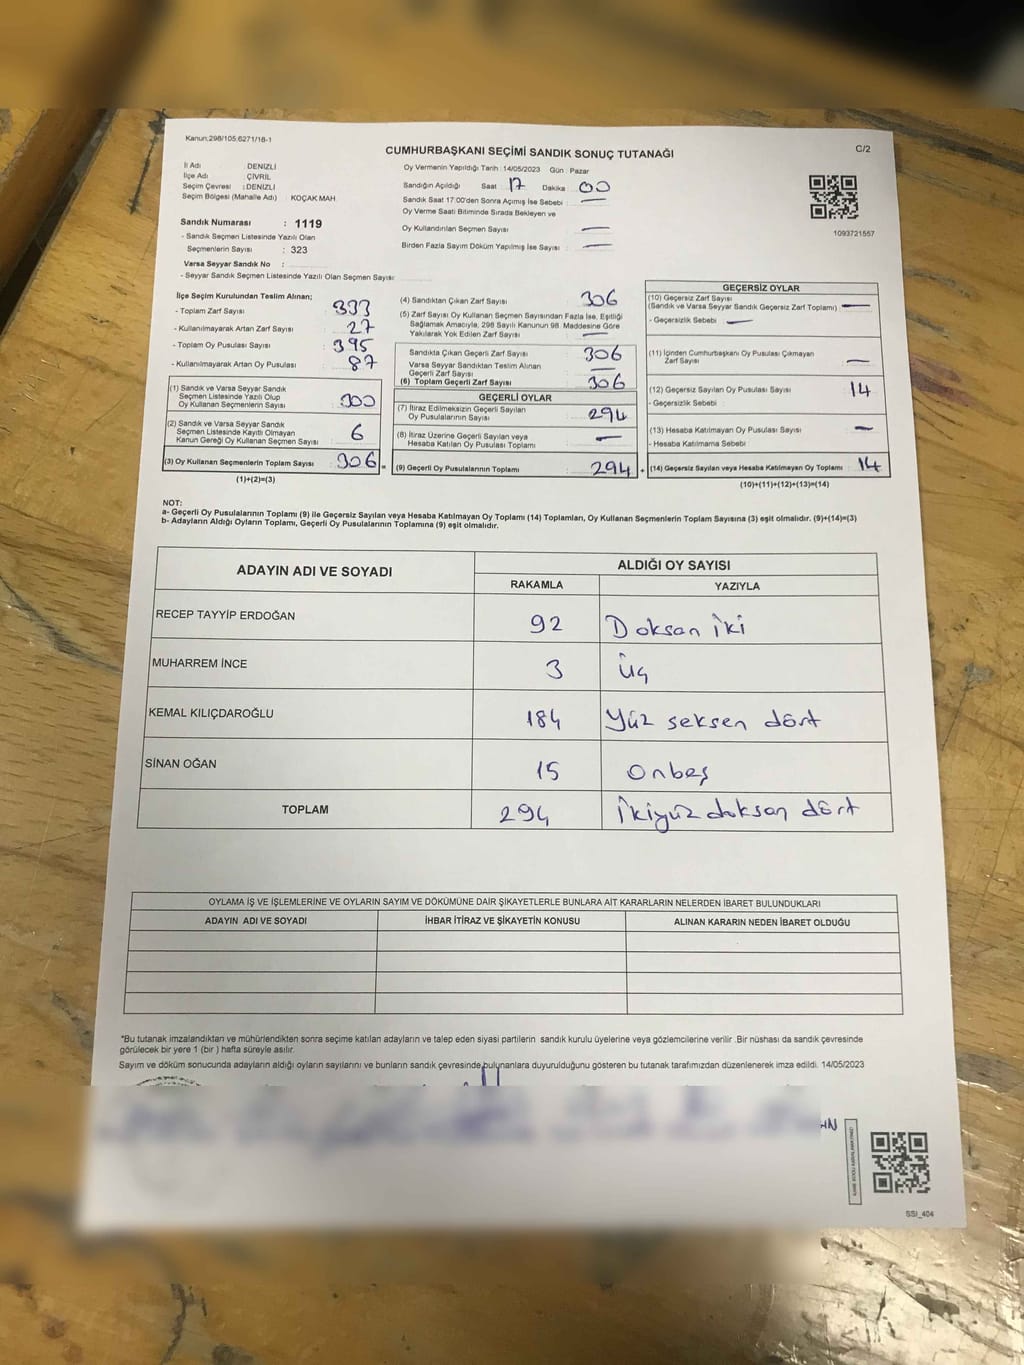 Kanun:298/105,6271/18-1
CUMHURBAŞKANI SEÇİMİ SANDIK SONUÇ TUTANAĞI
C/2
İl Adı DENİZLİ
İlçe Adı ÇİVRİL
Seçim Çevresi : DENİZLİ
Seçim Bölgesi (Mahalle Adı) KOÇAK MAH.
Oy Vermenin Yapıldığı Tarih : 14/05/2023 Gün : Pazar
Sandığın Açıldığı Saat 17 Dakika 00
Sandık Saat 17:00'den Sonra Açımış İse Sebebi : —
Oy Verme Saati Bitiminde Sırada Bekleyen ve
Oy Kullandırılan Seçmen Sayısı : —
Birden Fazla Sayım Döküm Yapılmış İse Sayısı : —
1093721557
Sandık Numarası : 1119
- Sandık Seçmen Listesinde Yazılı Olan
Seçmenlerin Sayısı : 323
Varsa Seyyar Sandık No :
- Seyyar Sandık Seçmen Listesinde Yazılı Olan Seçmen Sayısı:
İlçe Seçim Kurulundan Teslim Alınan;
- Toplam Zarf Sayısı : 333
- Kullanılmayarak Artan Zarf Sayısı : 27
- Toplam Oy Pusulası Sayısı : 395
- Kullanılmayarak Artan Oy Pusulası : 87
(1) Sandık ve Varsa Seyyar Sandık
Seçmen Listesinde Yazılı Olup
Oy Kullanan Seçmenlerin Sayısı : 300
(2) Sandık ve Varsa Seyyar Sandık
Seçmen Listesinde Kayıtlı Olmayan
Kanun Gereği Oy Kullanan Seçmen Sayısı : 6
(3) Oy Kullanan Seçmenlerin Toplam Sayısı : 306 =
(1)+(2)=(3)
(4) Sandıktan Çıkan Zarf Sayısı : 306
(5) Zarf Sayısı Oy Kullanan Seçmen Sayısından Fazla İse, Eşitliği
Sağlamak Amacıyla, 298 Sayılı Kanunun 98. Maddesine Göre
Yakılarak Yok Edilen Zarf Sayısı : —
Sandıkta Çıkan Geçerli Zarf Sayısı : 306
Varsa Seyyar Sandıktan Teslim Alınan
Geçerli Zarf Sayısı : —
(6) Toplam Geçerli Zarf Sayısı : 306
GEÇERLİ OYLAR
(7) İtiraz Edilmeksizin Geçerli Sayılan
Oy Pusulalarının Sayısı : 294
(8) İtiraz Üzerine Geçerli Sayılan veya
Hesaba Katılan Oy Pusulası Toplamı : —
(9) Geçerli Oy Pusulalarının Toplamı : 294 +
GEÇERSİZ OYLAR
(10) Geçersiz Zarf Sayısı
(Sandık ve Varsa Seyyar Sandık Geçersiz Zarf Toplamı) : —
- Geçersizlik Sebebi : —
(11) İçinden Cumhurbaşkanı Oy Pusulası Çıkmayan
Zarf Sayısı : —
(12) Geçersiz Sayılan Oy Pusulası Sayısı : 14
- Geçersizlik Sebebi :
(13) Hesaba Katılmayan Oy Pusulası Sayısı : —
- Hesaba Katılmama Sebebi :
(14) Geçersiz Sayılan veya Hesaba Katılmayan Oy Toplamı : 14
(10)+(11)+(12)+(13)=(14)
NOT:
a- Geçerli Oy Pusulalarının Toplamı (9) ile Geçersiz Sayılan veya Hesaba Katılmayan Oy Toplamı (14) Toplamları, Oy Kullanan Seçmenlerin Toplam Sayısına (3) eşit olmalıdır. (9)+(14)=(3)
b- Adayların Aldığı Oyların Toplamı, Geçerli Oy Pusulalarının Toplamına (9) eşit olmalıdır.
ADAYIN ADI VE SOYADI ALDIĞI OY SAYISI
RAKAMLA YAZIYLA
RECEP TAYYİP ERDOĞAN 92 Doksan iki
MUHARREM İNCE 3 üç
KEMAL KILIÇDAROĞLU 184 Yüz seksen dört
SİNAN OĞAN 15 onbeş
TOPLAM 294 ikiyüz doksan dört
OYLAMA İŞ VE İŞLEMLERİNE VE OYLARIN SAYIM VE DÖKÜMÜNE DAİR ŞİKAYETLERLE BUNLARA AİT KARARLARIN NELERDEN İBARET BULUNDUKLARI
ADAYIN ADI VE SOYADI İHBAR İTİRAZ VE ŞİKAYETİN KONUSU ALINAN KARARIN NEDEN İBARET OLDUĞU
*Bu tutanak imzalandıktan ve mühürlendikten sonra seçime katılan adayların ve talep eden siyasi partilerin sandık kurulu üyelerine veya gözlemcilerine verilir .Bir nüshası da sandık çevresinde
görülecek bir yere 1 (bir ) hafta süreyle asılır.
Sayım ve döküm sonucunda adayların aldığı oyların sayılarını ve bunların sandık çevresinde bulunanlara duyurulduğunu gösteren bu tutanak tarafımızdan düzenlenerek imza edildi. 14/05/2023
SSI_404